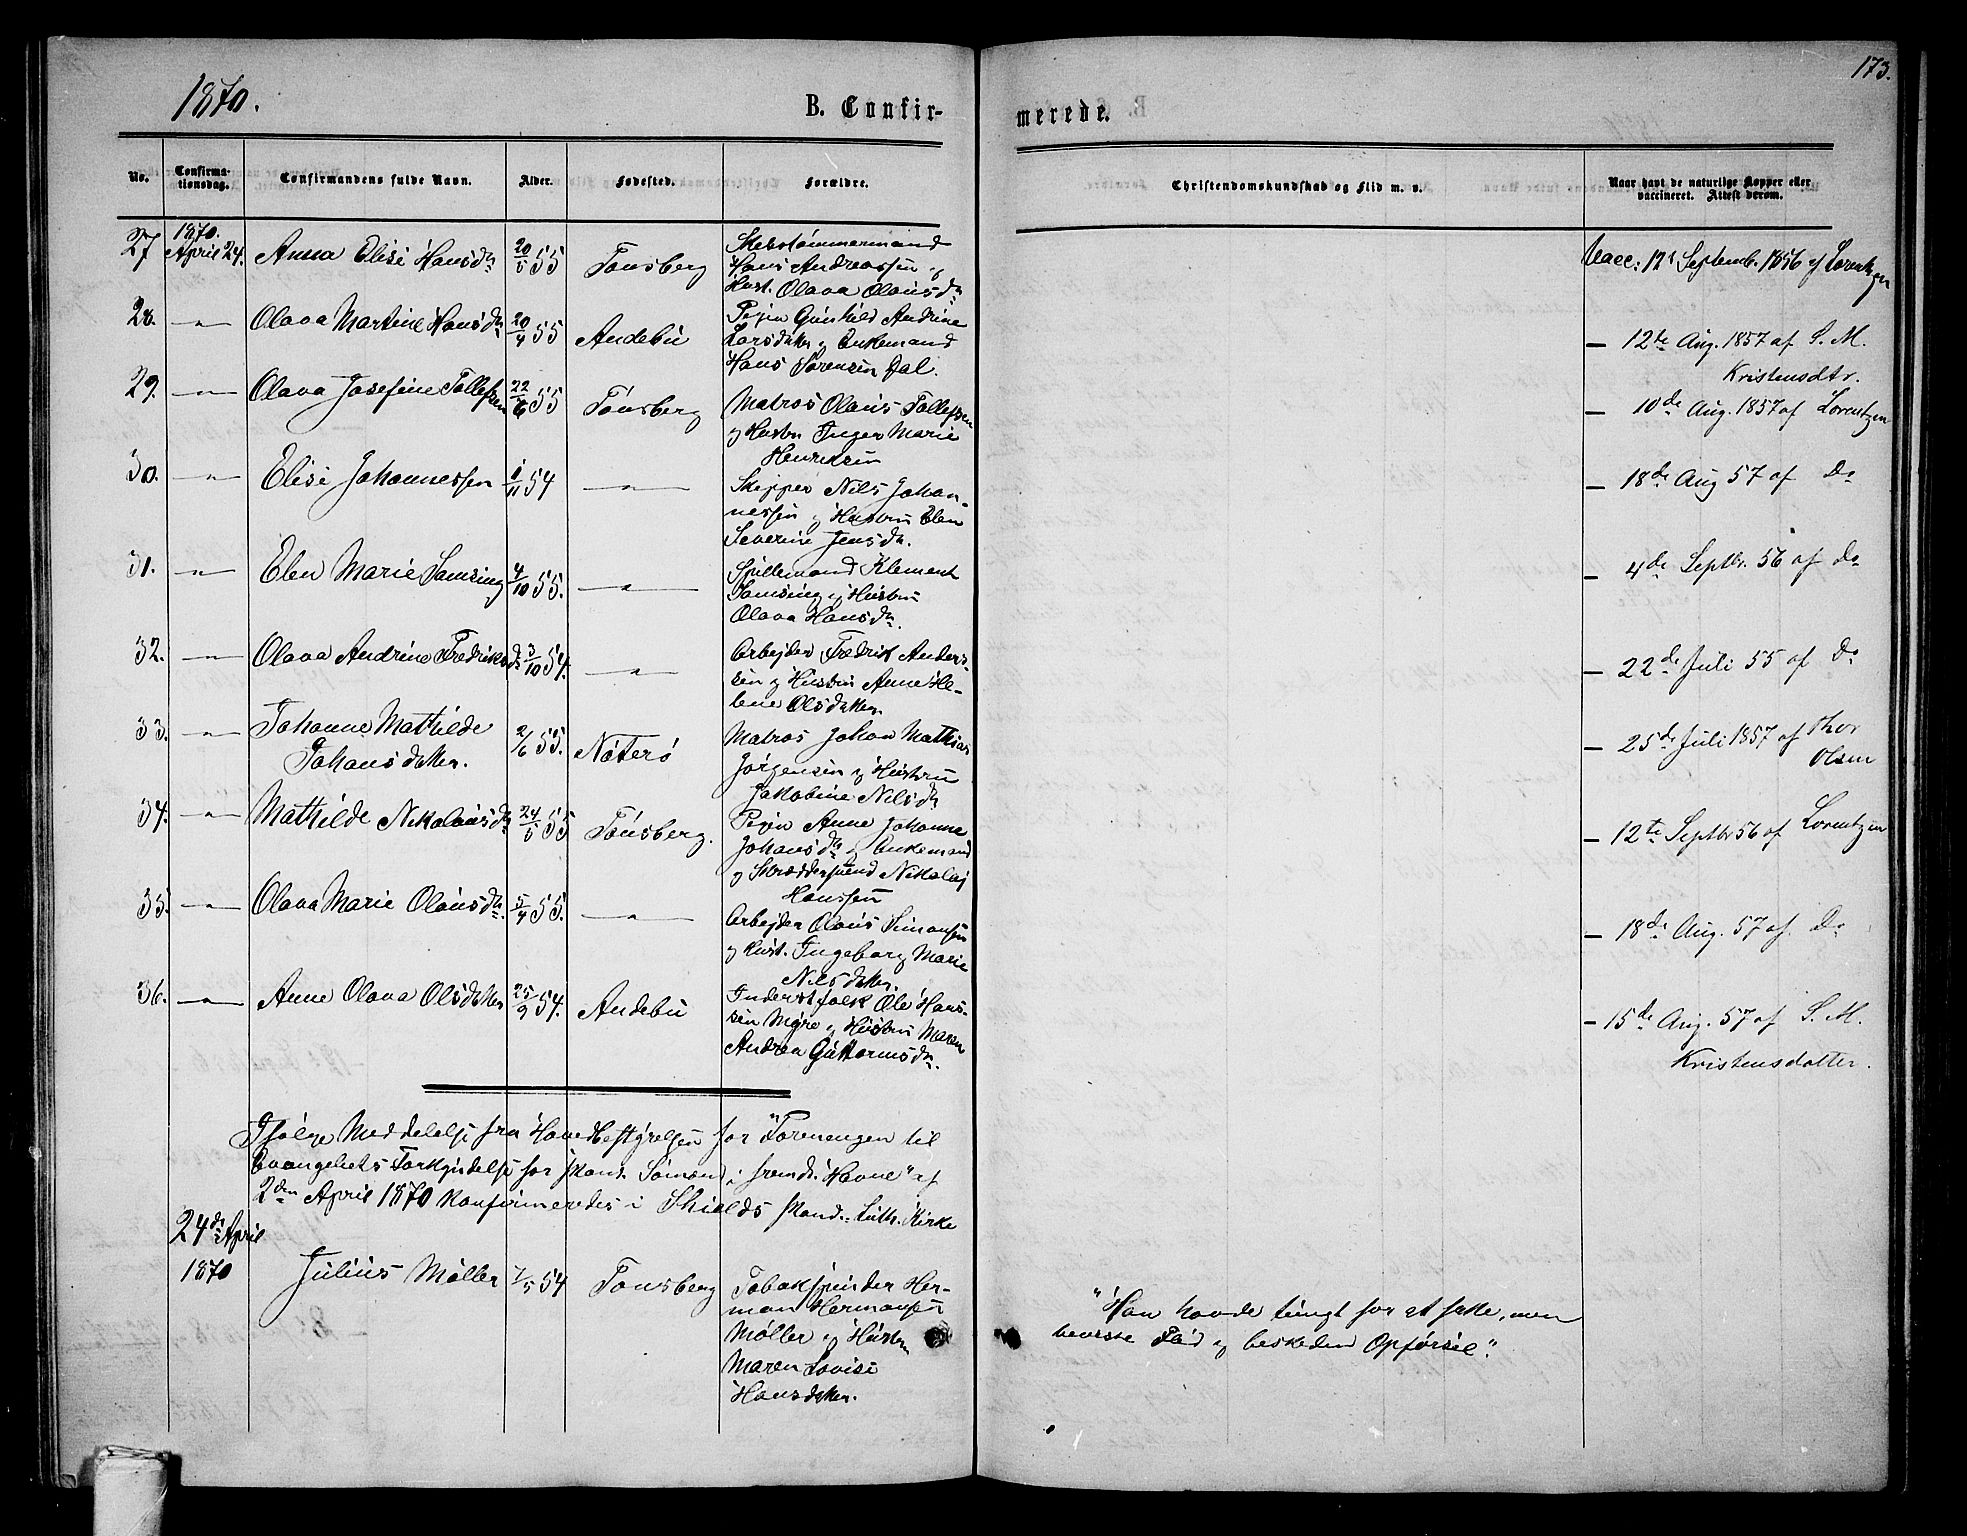 1870.
B. Confir-
merede.
173.
No.
Confirma-
tionsdag.
Confirmandens fulde Navn.
Alder.
Fødested.
Forældre.
Christendomskundskab og Flid m. v.
Naar havt de naturlige Kopper eller
vaccineret. Attest derom.
27 1870. April 24. Anna Elise Hansdtr 20/5 55 Tønsberg
Skibstømmermand
Hans Andreassen og
Hust. Olava Olausdtr
Vacc: 12te Septemb. 1856 af Lorentzen
28. —"— Olava Martine Hansdtr 20/4 55 Andebu
Pigen Gunhild Andrine
Larsdatter og Enkemand
Hans Sørensen Dal.
— 12te Aug. 1857 af S. M.
Kristensdtr.
29. —"— Olava Josefine Tollefsen 22/6 55 Tønsberg
Matros Olaus Tollefsen
og Hustru Inger Marie
Henriksen
— 10de Aug. 1857 af Lorentzen
30. —"— Elise Johannessen 1/11 54 —"—
Skipper Nils Johan-
nessen og Hustru Elen
Severine Jensdtr.
— 18de Aug 57 af Do
31. —"— Elen Marie Samsing 4/10 55. —"—
Spillemand Klement
Samsing og Hustru
Olava Hansdtr.
— 4de Septbr. 56 af Do
32. —"— Olava Andrine Fredriksdtr 3/10 54. —"—
Arbejder Fredrik Anders-
sen og Hustru Anne He-
lene Olsdatter.
— 22de Juli 55 af Do
33. —"— Johanne Mathilde
Johansdatter. 2/6 55. Nøterø
Matros Johan Mathias
Jørgensen og Hustru
Jakobine Nilsdtr
— 25de Juli 1857 af Thor
Olsen
34. —"— Mathilde Nikolausdtr 24/5 55 Tønsberg.
Pigen Anne Johanne
Johansdtr og Enkemand
og Skræddersvend Nikolaj
Hanssen
— 12te Septbr 56 af Lorentzen
35. —"— Olava Marie Olausdtr. 5/4 55. —"—
Arbejder Olaus Simonsen
og Hust. Ingeborg Marie
Nilsdatter.
— 18de Aug. 57 af. Do
36. —"— Anne Olava Olsdatter 25/9 54. Andebu
Inderstfolk Ole Hans-
sen Myre og Hustru Maren
Andrea Guttormsdtr.
— 15de Aug. 57 af S. M.
Kristensdatter.
Ifølge Meddelelse fra Hovedbestyrelsen for "Foreningen til
Evangeliets Forkyndelse for skand. Sømænd i fremde Havne" af
2den April 1870 konfirmeredes i Shields skand. luth. Kirke
24de April
1870 Julius Møller 7/5 54 Tønsberg
Tobakspinder Her-
man Hermansen
Møller og Hustru
Maren Lovise
Hansdatter.
"Han havde tungt for at fatte, men
beviste Flid og beskeden Opførsel".